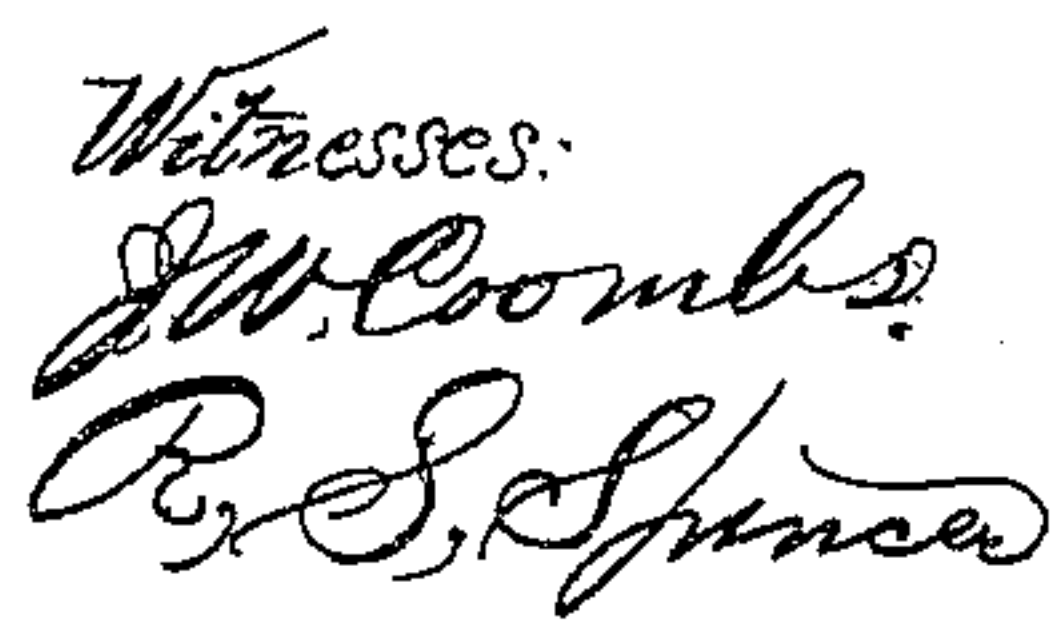 Witnesses:
J. W. Coombs.
R, S, Spencer